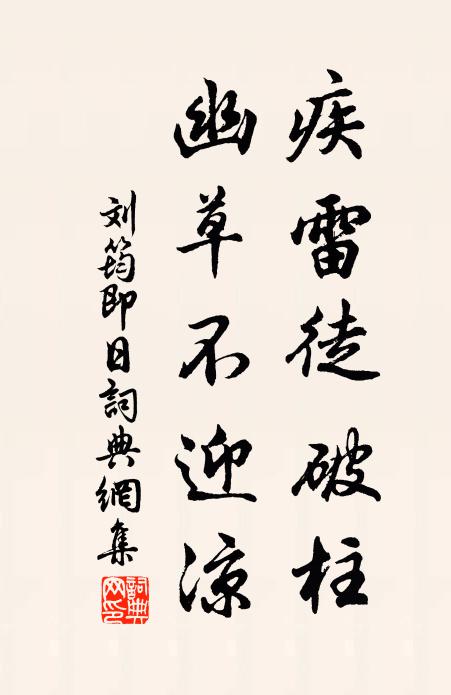 疾雷徒破柱
幽草不迎涼
刘筠即日詞典網集
詞典网印